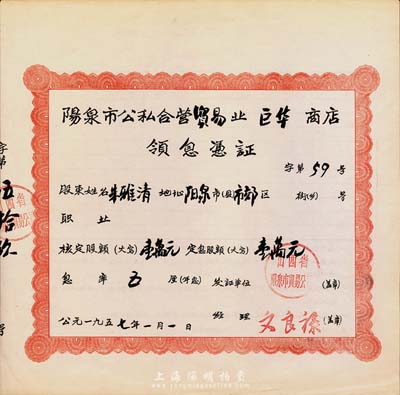 陽泉市公私合营貿易业 巨华 商店
領息憑証
字第 59 号
股東姓名 朱雅清 地址 阳泉市(县)市郊区 街(乡) 号
职 业
核定股額(大写) 壹萬元 定息股額(大写) 壹萬元
息 率 五 厘(年息) 发証单位 (盖章)
经 理 文良禄 (盖章)
公元一九五七年一月一日
字第
五拾玖
号
上海陽明拍賣